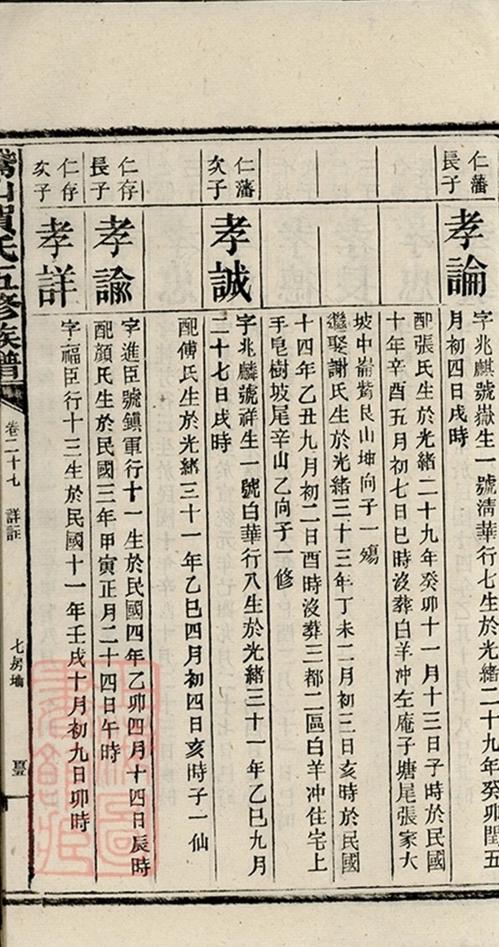 仁藩長子
孝論
字兆麒號嶽生一號淸華行七生於光緒二十九年癸卯閏五
月初四日戌時
配張氏生於光緒二十九年癸卯十一月十三日子時於民國
十年辛酉五月初七日巳時沒葬白羊冲左庵子塘尾張家大
坡中崙觜艮山坤向子一殤
繼娶謝氏生於光緒三十三年丁未二月初三日亥時於民國
十四年乙丑九月初二日酉時沒葬三都二區白羊冲住宅上
手皂樹坡尾辛山乙向子一修
仁藩次子
孝誠
字兆麟號祥生一號白華行八生於光緒三十一年乙巳九月
二十七日戌時
配傅氏生於光緒三十一年乙巳四月初四日亥時子一仙
仁存長子
孝諭
字進臣號鎭軍行十一生於民國四年乙卯四月十四日辰時
配顏氏生於民國三年甲寅正月二十四日午時
仁存次子
孝詳
字福臣行十三生於民國十一年壬戌十月初九日卯時
山賀氏五修族譜
卷二十七 詳註
七房